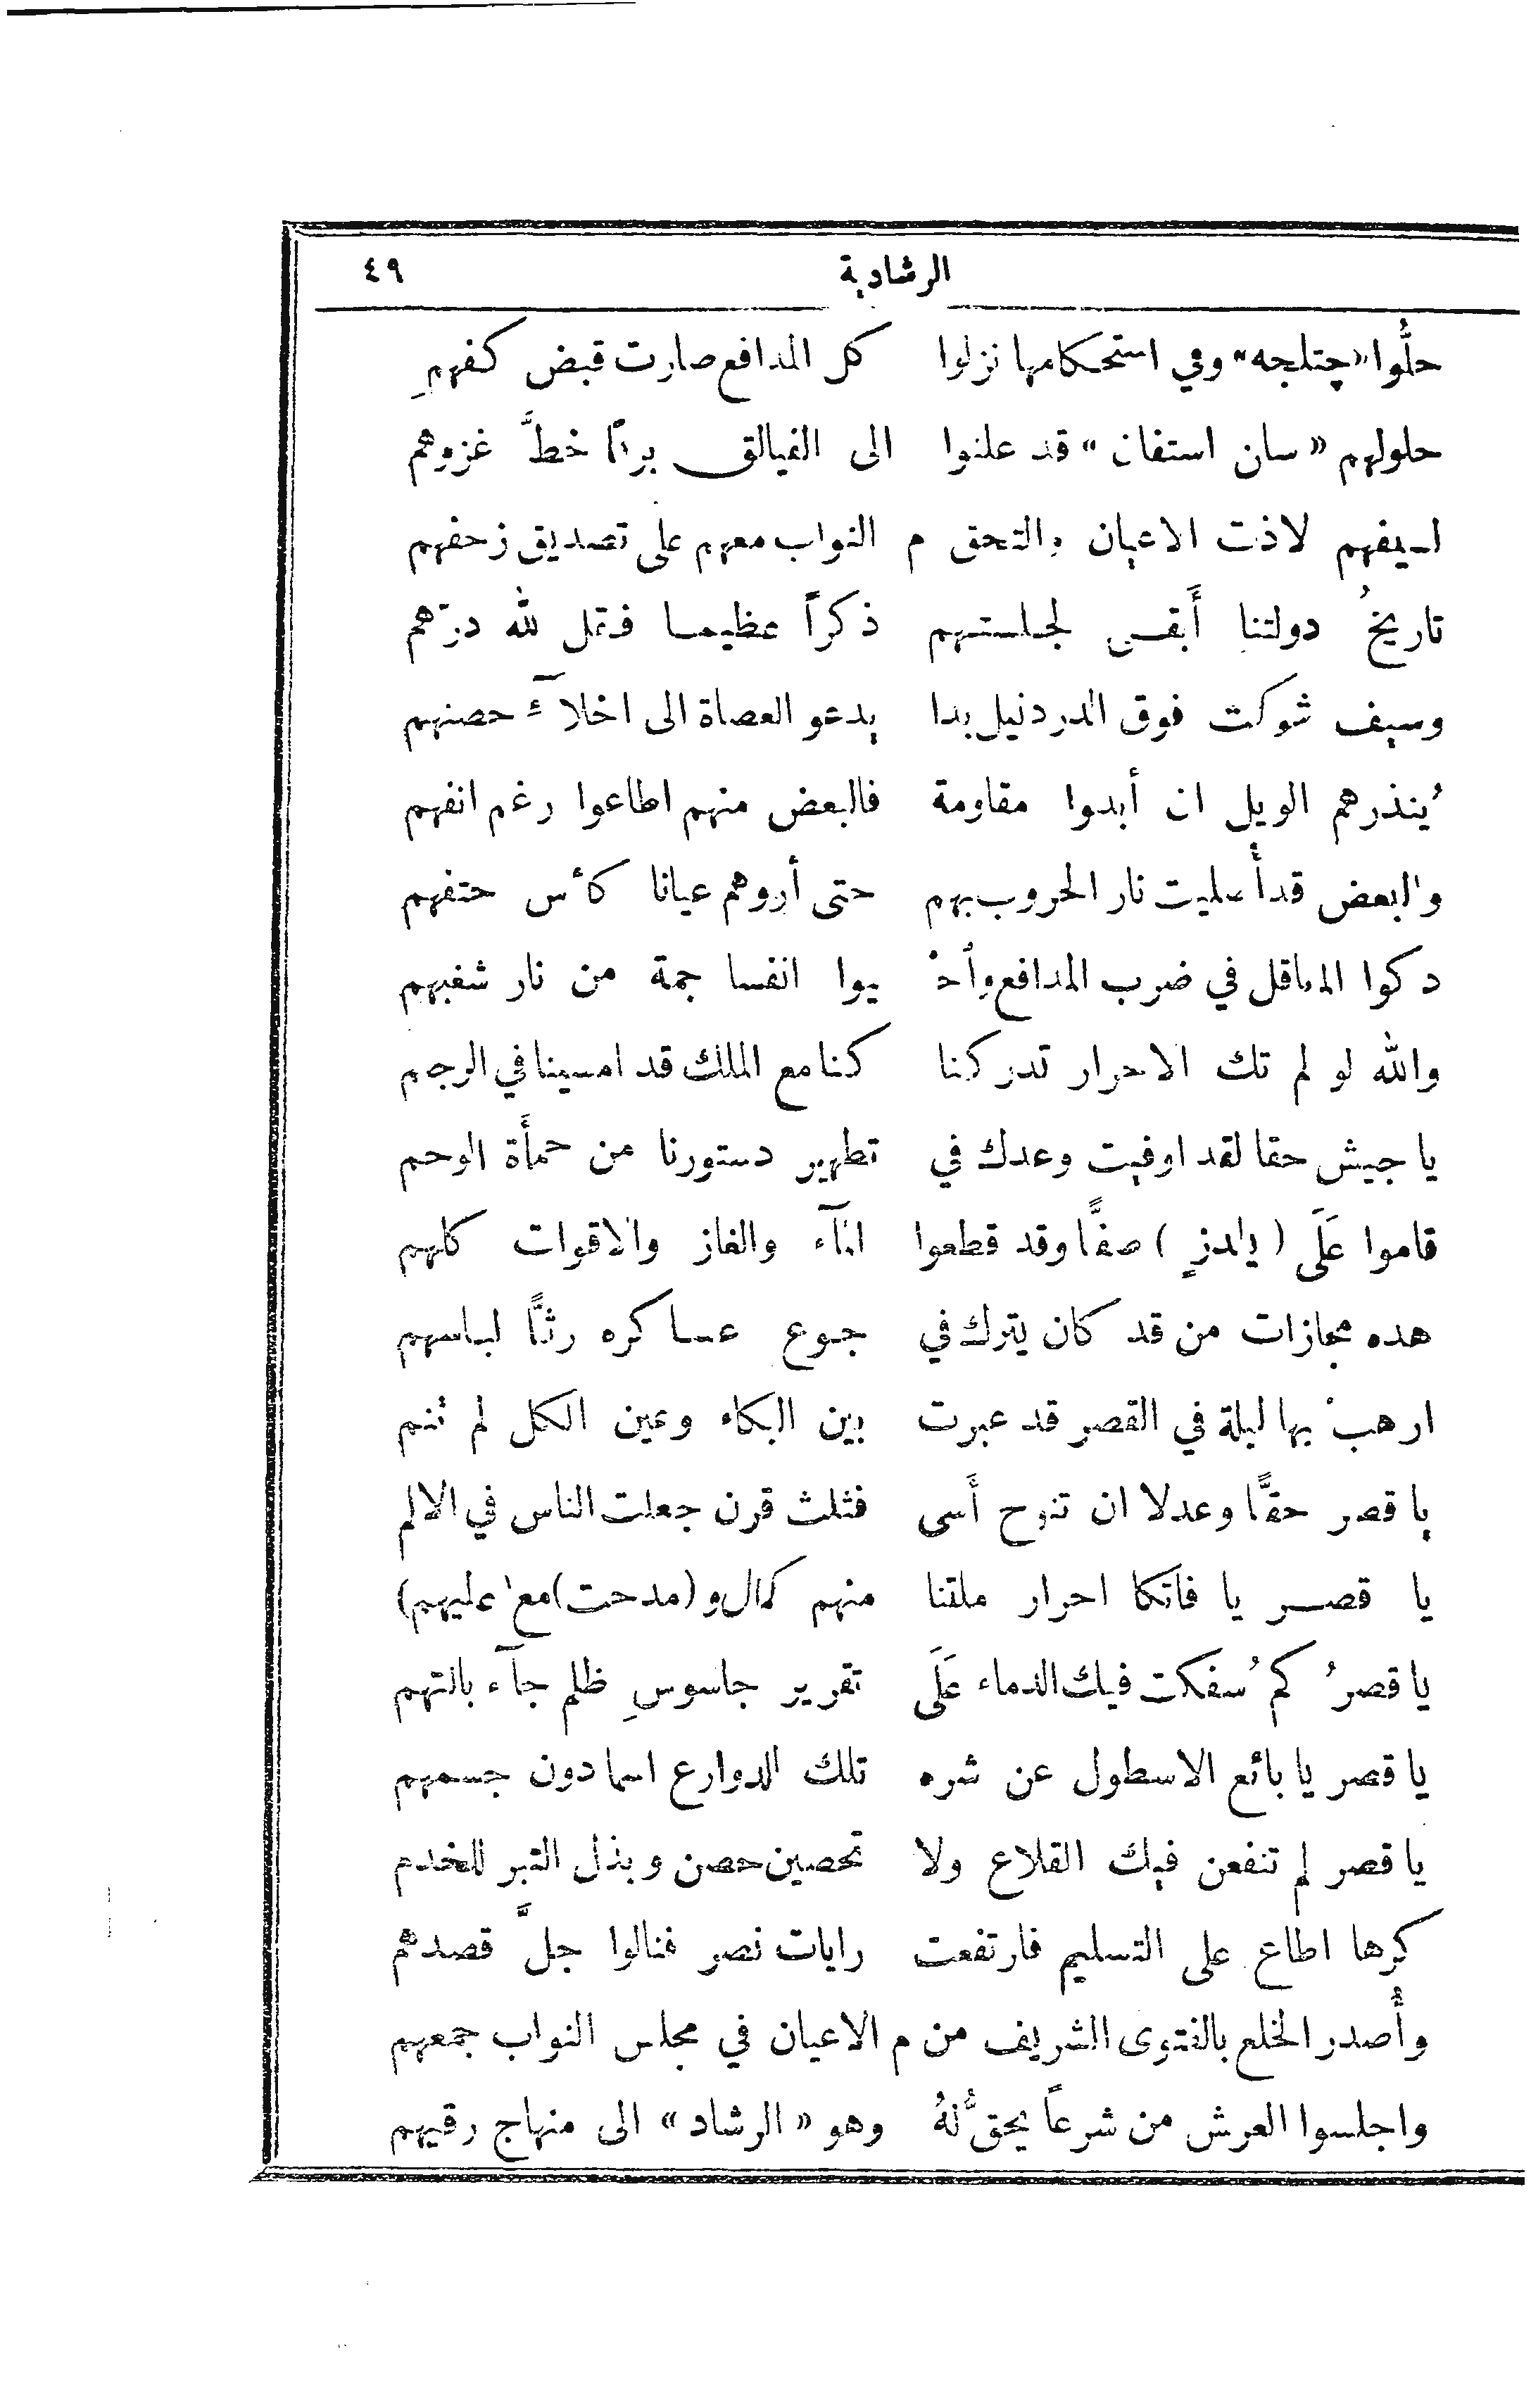 الرشادية ٤٩
حلُّوا «چتلجه» وفي استحكامها نزلوا كل المدافع صارت قبض كفهمِ
حلولهم «سان استفان» قد علنوا الى الفيالق برقاً خطَّ غزوهم
لسيفهم لاذت الاعيان والتحق م النواب معهم على تصديق زحفهم
تاريخُ دولتنا أَبقى لجلستهم ذكراً عظيما فقل لله درّهم
وسيف شوكت فوق الدردنيل بدا يدعو العصاة الى اخلآء حصنهم
يُنذرهم الويل ان أبدوا مقاومة فالبعض منهم اطاعوا رغم انفهم
والبعض قد أُصليت نار الحروب بهم حتى أروهم عيانا كأس حتفهم
دكوا المعاقل في ضرب المدافع وأحْ يوا انفسا جمة من نار شغبهم
والله لو لم تك الاحرار تدركنا كنا مع الملك قد امسينا في الرجم
يا جيش حقا لقد اوفيت وعدك في تطهير دستورنا من حمأَة الوحم
قاموا عَلَى (يالدزٍ) صفًّا وقد قطعوا المآء والغاز والاقوات كلهم
هده مجازات من قد كان يترك في جوع عساكره رثًّا لباسهم
ارهبْ بها ليلة في القصر قد عبرت بين البكاء وعين الكل لم تنم
يا قصر حقًّا وعدلا ان تنوح أَسى فثلث قرن جعلت الناس في الالم
يا قصر يا فاتكا احرار ملقنا منهم كمال و (مدحت) مع (عليهم)
يا قصرُ كم سُفكت فيك الدماء عَلَى تقرير جاسوسِ ظلم جآء بالتهم
يا قصر يا بائع الاسطول عن شره تلك الدوارع اسما دون جسمهم
يا قصر لم تنفعن فيك القلاع ولا تحصين حصن وبذل التبر للخدم
كرها اطاع على التسليم فارتفعت رايات نصر فنالوا جلَّ قصدهم
وأُصدر الخلع بالفتوى الشريف من م الاعيان في مجلس النواب جمعهم
واجلسوا العرش من شرعاً يحقُّ لهُ وهو «الرشاد» الى منهاج رقيهم